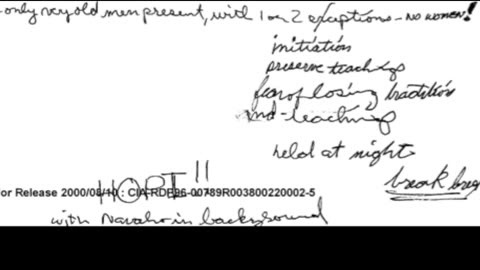 only very old men present, with 1 or 2 exceptions - NO WOMEN!
initiation
preserve teachings
fear of losing tradition
and teaching
held at night
HOPI !!
break
or Release 2000/08/10 : CIA-RDP96-00789R003800220002-5
with Navaho in background